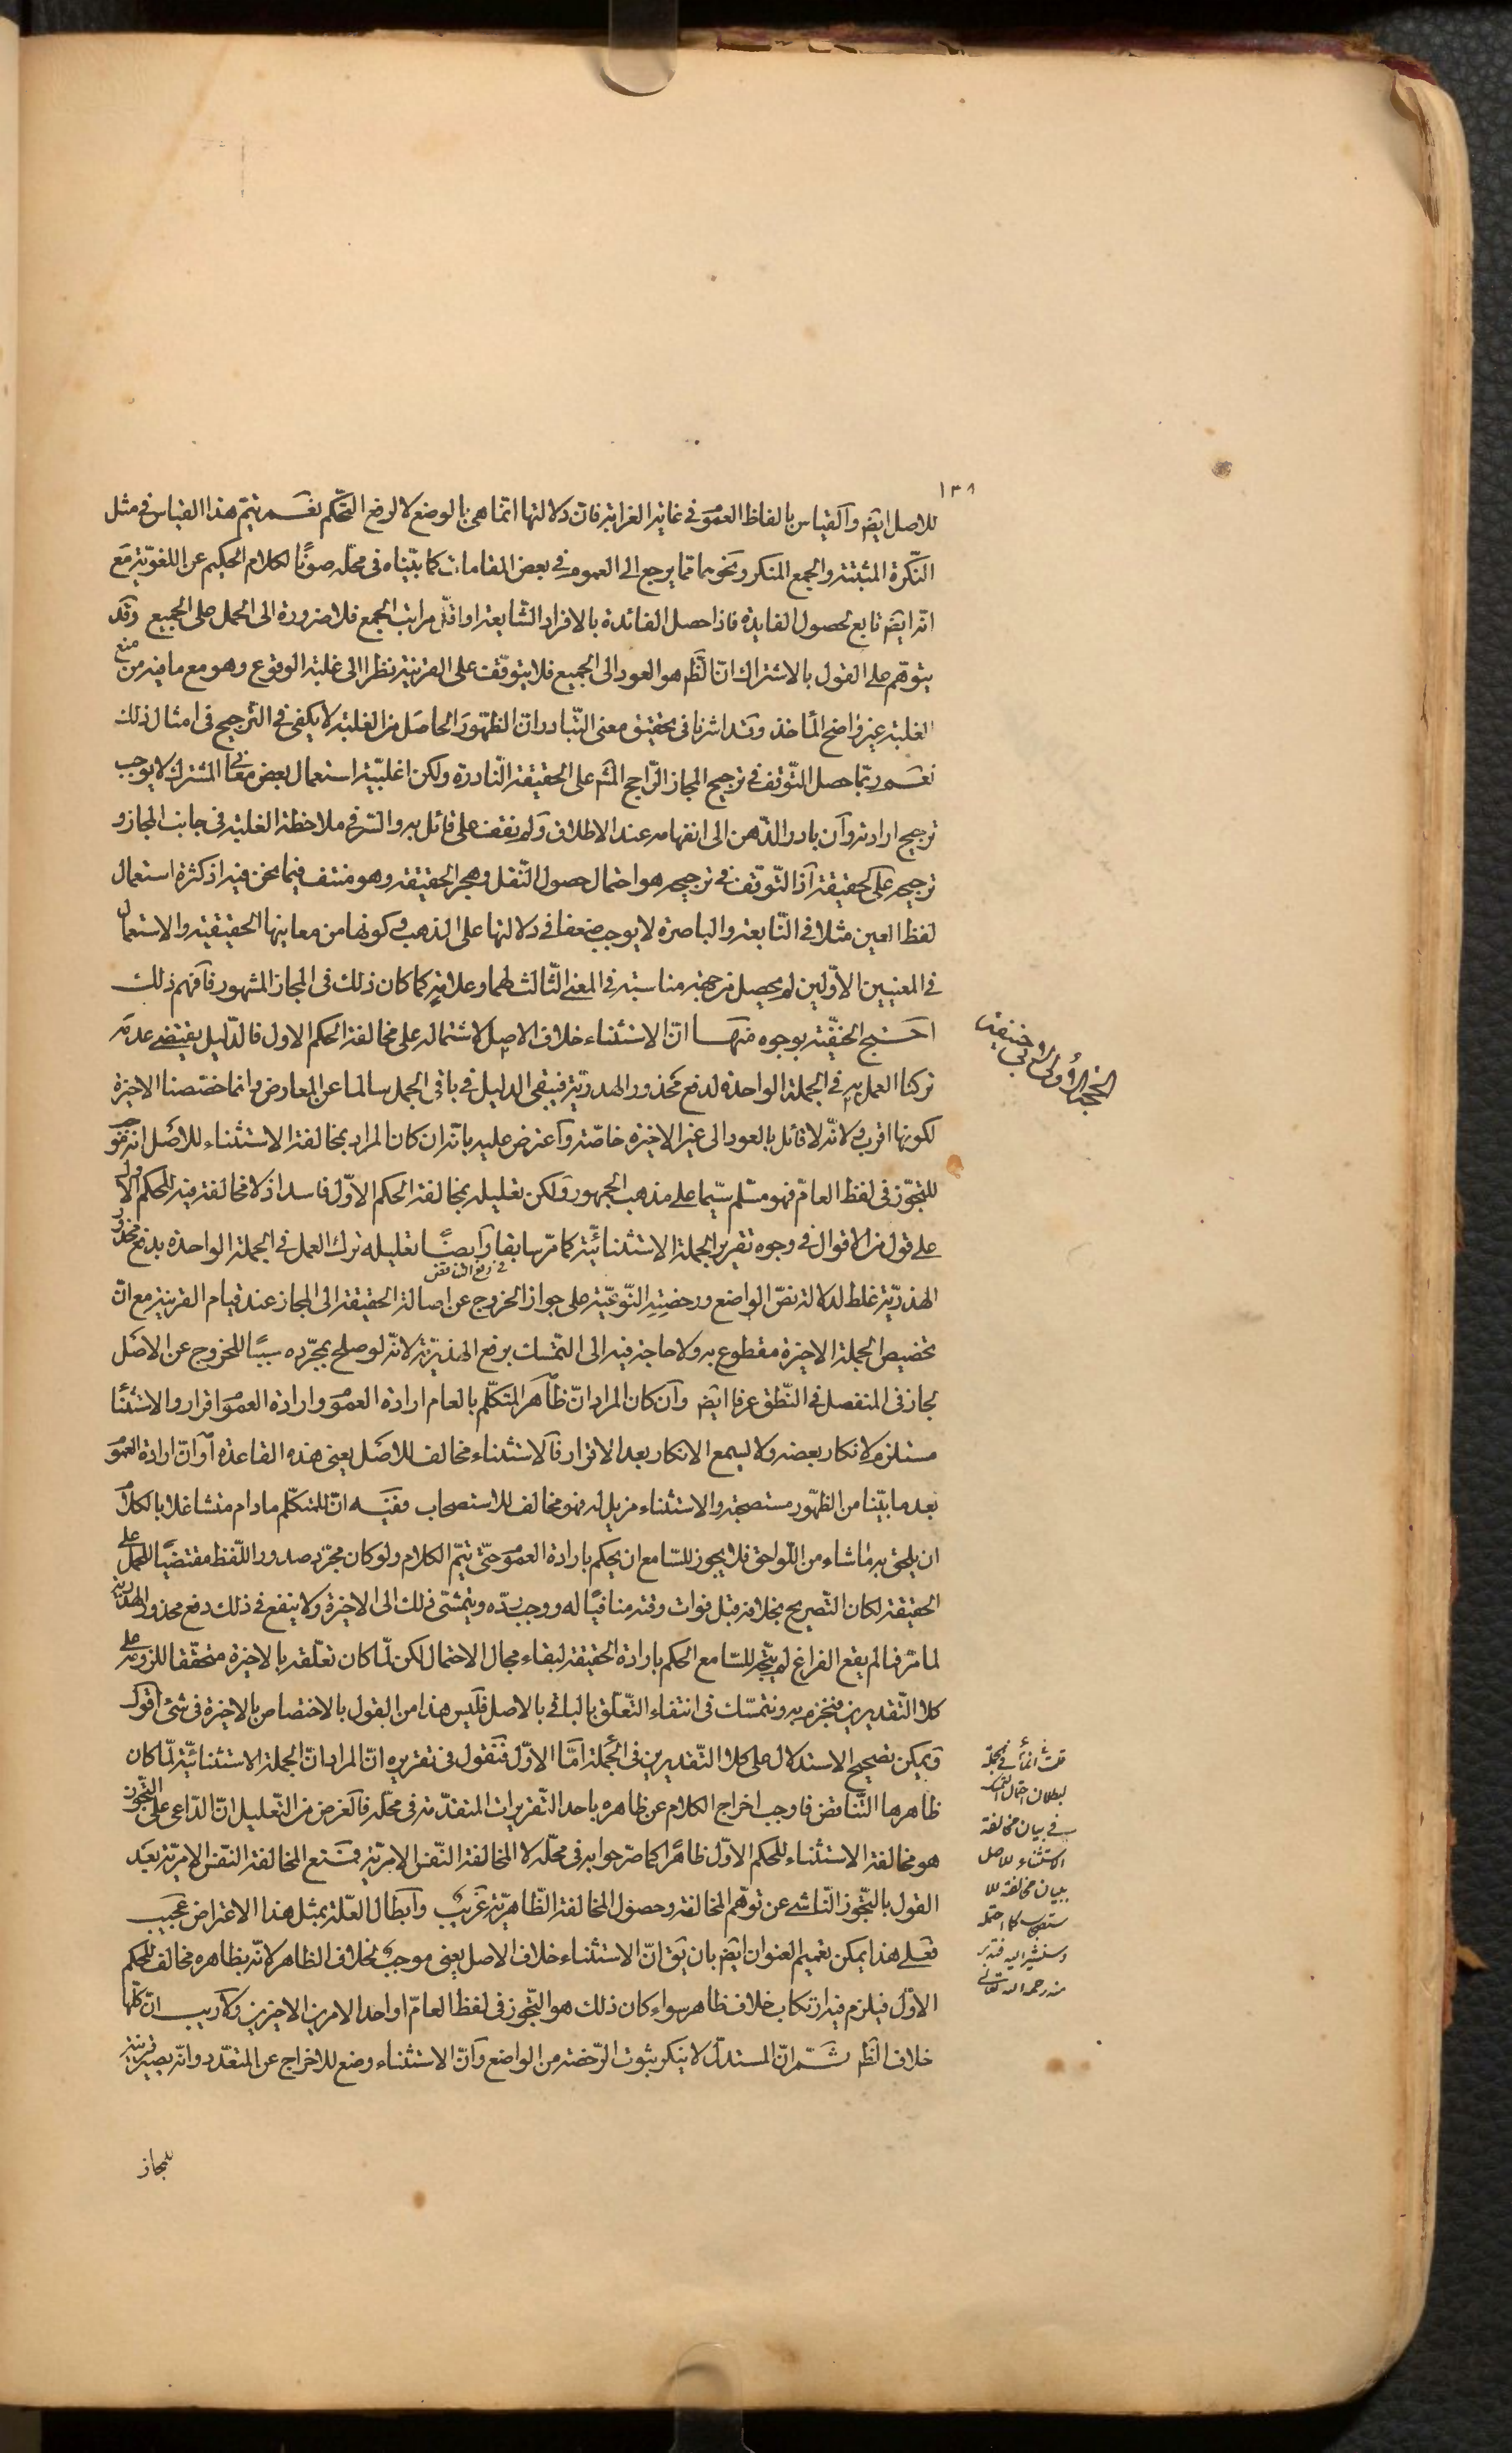 ١٣٨
للاصل ايضا والقياس بالفاظ العموم فى غاية الغرابة فان دلالتها انما هى بالوضع لا لرفع التحكم نعم يتم هذا القياس فى مثل
النكرة المثبتة والجمع المنكر ونحوهما مما يرجع الى العموم فى بعض المقامات كما بيّناه فى محلّه صونًا لكلام الحكيم عن اللغويّة مع
انه ايضا تابع لحصول الفايدة فاذا حصل الفائدة بالافراد الشايعة او اقلّ مراتب الجمع فلا ضرورة الى الحمل على الجميع وقد
يتوهّم على القول بالاشتراك انّ الظم هو العود الى الجميع فلا يتوقّف على القرينة نظرا الى غلبة الوقوع وهو مع ما فيه من منع
الغلبة غير واضح المأخذ وقد اشرنا فى تحقيق معنى التّبادر ان الظهور الحاصل من الغلبة لا يكفى فى الترجيح فى امثال ذلك
نعم ربّما حصل التّوقف فى ترجيح المجاز الرّاجح المشم على الحقيقة النّادرة ولكن اغلبيّة استعمال بعض معانى المشترك لا يوجب
ترجيح ارادته وان بادر الذّهن الى انفهامه عند الاطلاق ولم نقف على قائل به والسّر فى ملاحظة الغلبة فى جانب المجاز و
ترجيحه على الحقيقة اذ التّوقف فى ترجيحه هو احتمال حصول النّقل وهجر الحقيقة وهو منتف فيما نحن فيه اذ كثرة استعمال
لفظ العين مثلا فى النّابعة والباصرة لا يوجب ضعفا فى دلالتها على الذهب فى كونها من معانيها الحقيقية والاستعمال
فى المعنيين الاوّلين لم يحصل من جهة مناسبة فى المعنى الثّالث لهما وعلاقة كما كان ذلك فى المجاز المشهور فافهم ذلك
احتج الحنفيّة بوجوه منها انّ الاستثناء خلاف الاصل لاشتماله على مخالفة الحكم الاول فالدّليل يقتضى عدمه
تركنا العمل به فى الجملة الواحدة لدفع محذور الهذريّة فيبقى الدليل فى باقى الجمل سالما عن المعارض وانما خصّصنا الاخيرة
لكونها اقرب ولانّه لا قائل بالعود الى غير الاخيرة خاصّة واعترض عليه بانه ان كان المراد بمخالفة الاستثناء للاصل انه موجب
للتجوّز فى لفظ العامّ فهو مسلّم سيّما على مذهب الجمهور ولكن تعليله بمخالفة الحكم الاوّل فاسد اذ لا مخالفة فيه للحكم الاول
على قول من الاقوال فى وجوه تقرير الجملة الاستثنائيّة كما مرّ سابقا وايضًا تعليله ترك العمل فى الجملة الواحدة بدفع محذور
فى رفع التناقض
الهذريّة غلط لدلالة نصّ الواضع ورخصته النّوعيّة على جواز الخروج عن اصالة الحقيقة الى المجاز عند قيام القرينة مع انّ
تخصيص الجملة الاخيرة مقطوع به ولا حاجة فيه الى التمسّك برفع الهذريّة لانّه لو صلح بمجرّده سببًا للخروج عن الاصل
لجاز فى المنفصل فى النّطق عرفا ايضا وان كان المراد انّ ظاهر المتكلّم بالعام ارادة العموم وارادة العموم اقرار والاستثناء
مستلزم لانكار بعضه ولا يسمع الانكار بعد الاقرار فالاستثناء مخالف للاصل يعنى هذه القاعدة او انّ ارادة العموم
بعد ما بيّنا من الظهور مستصحبة والاستثناء مزيل له فهو مخالف للاستصحاب ففيه انّ للمتكلّم ما دام متشاغلا بالكلام
ان يلحق به ما شاء من اللّواحق فلا يجوز للسّامع ان يحكم بارادة العموم حتّى يتمّ الكلام ولو كان مجرّد صدور اللّفظ مقتضيًا للحمل على
الحقيقة لكان التّصريح بخلافه قبل فوات وقته منافيًا له ووجب ردّه ويتمشّى ذلك الى الاخيرة ولا ينفع فى ذلك دفع محذور الهذرية
لما مرّ فما لم يقع الفراغ لم يتّجه للسّامع الحكم بارادة الحقيقة لبقاء مجال الاحتمال لكن لمّا كان تعلّقه بالاخيرة متحقّقا للزومه على
كلا التّقديرين فنجزم به ونتمسّك فى انتفاء التّعلّق بالباقى بالاصل فليس هذا من القول بالاختصاص بالاخيرة فى شئ اقول
ويمكن تصحيح الاستدلال على كلا التّقديرين فى الجملة امّا الاوّل فنقول فى تقريره انّ المراد انّ الجملة الاستثنائيّة لمّا كان
ظاهرها التّناقض فاوجب اخراج الكلام عن ظاهره باحد التّقريرات المتقدّمة فى محلّه فالغرض من التّعليل انّ الدّاعى على التّجوز
هو مخالفة الاستثناء للحكم الاوّل ظاهرا كما صرّحوا به فى محلّه لا المخالفة النّفس الامريّة فمنع المخالفة النّفس الامريّة بعد
القول بالتّجوز النّاشى عن توهّم المخالفة وحصول المخالفة الظّاهريّة غريب وابطال العلّة بمثل هذا الاعتراض عجيب
فعلى هذا يمكن تعميم العنوان ايضا بان يق انّ الاستثناء خلاف الاصل يعنى موجب لخلاف الظاهر لانّه بظاهره مخالف للحكم
الاوّل فيلزم فيه ارتكاب خلاف ظاهر سواء كان ذلك هو التّجوز فى لفظ العامّ او احد الامرين الاخيرين ولا ريب انّ كلّها
خلاف الظم ثم انّ المستدلّ لا ينكر ثبوت الرّخصة من الواضع وانّ الاستثناء وضع للاخراج عن المتعدّد وانّه يصير قرينة
للمجاز
الحجة الاولى لابى حنيفة
قلت انما فى الجملة
لبطلان احتمال
فى بيان مخالفة
الاستثناء للاصل
ببيان مخالفة للا
ستصحاب كما احتمله
وسنشير اليه فتدبر
منه رحمه الله تعالى